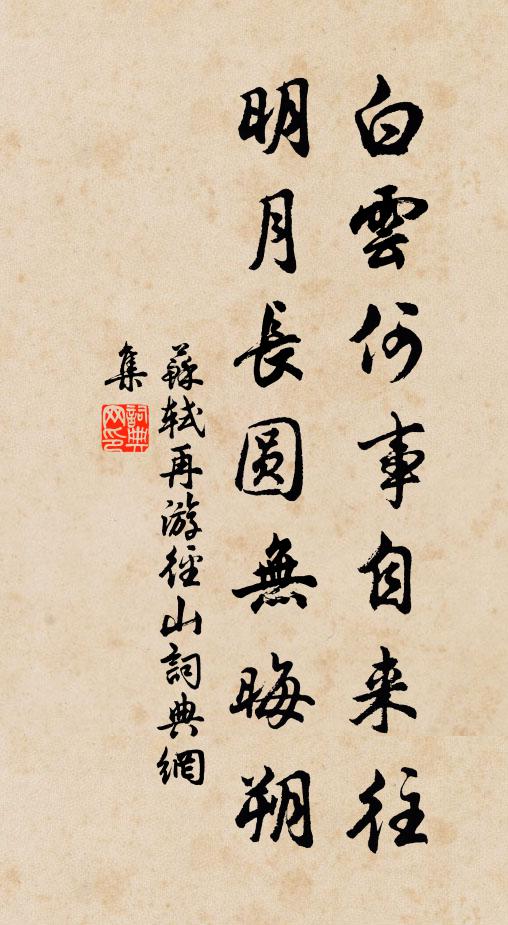 白雲何事自来往
明月長圓無晦朔
蘇軾再游徑山詞典網
集
詞典网印